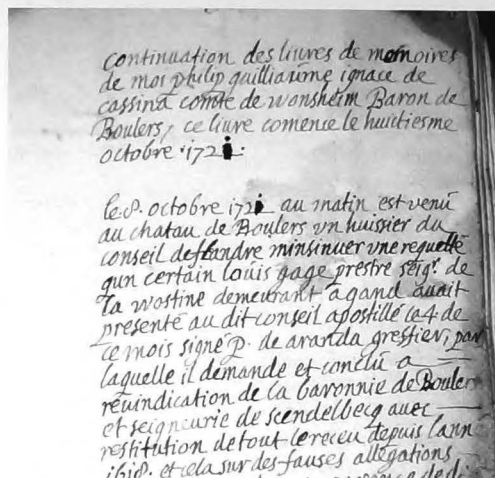 continuation des liures de memoires
de moi philip guilliaume ignace de
cassina comte de wonsheim Baron de
Boulers, ce liure comence le huictiesme
octobre 1721.
le 8. octobre 1721 au matin est venu
au chatau de Boulers vn huissier du
conseil de flandre minsinuer vne requette
qun certain louis gage prestre seigr. de
la wostine demeurant a gand auait
presenté au dit conseil apostillé le 4 de
ce mois signé p. de aranda greffier, par
laquelle il demande et conclu a
reuindication de la baronnie de Boulers
et seigneurie de scendelbecq auec
restitution de tout le receu depuis lann
1618. et cela sur des fauses allegations